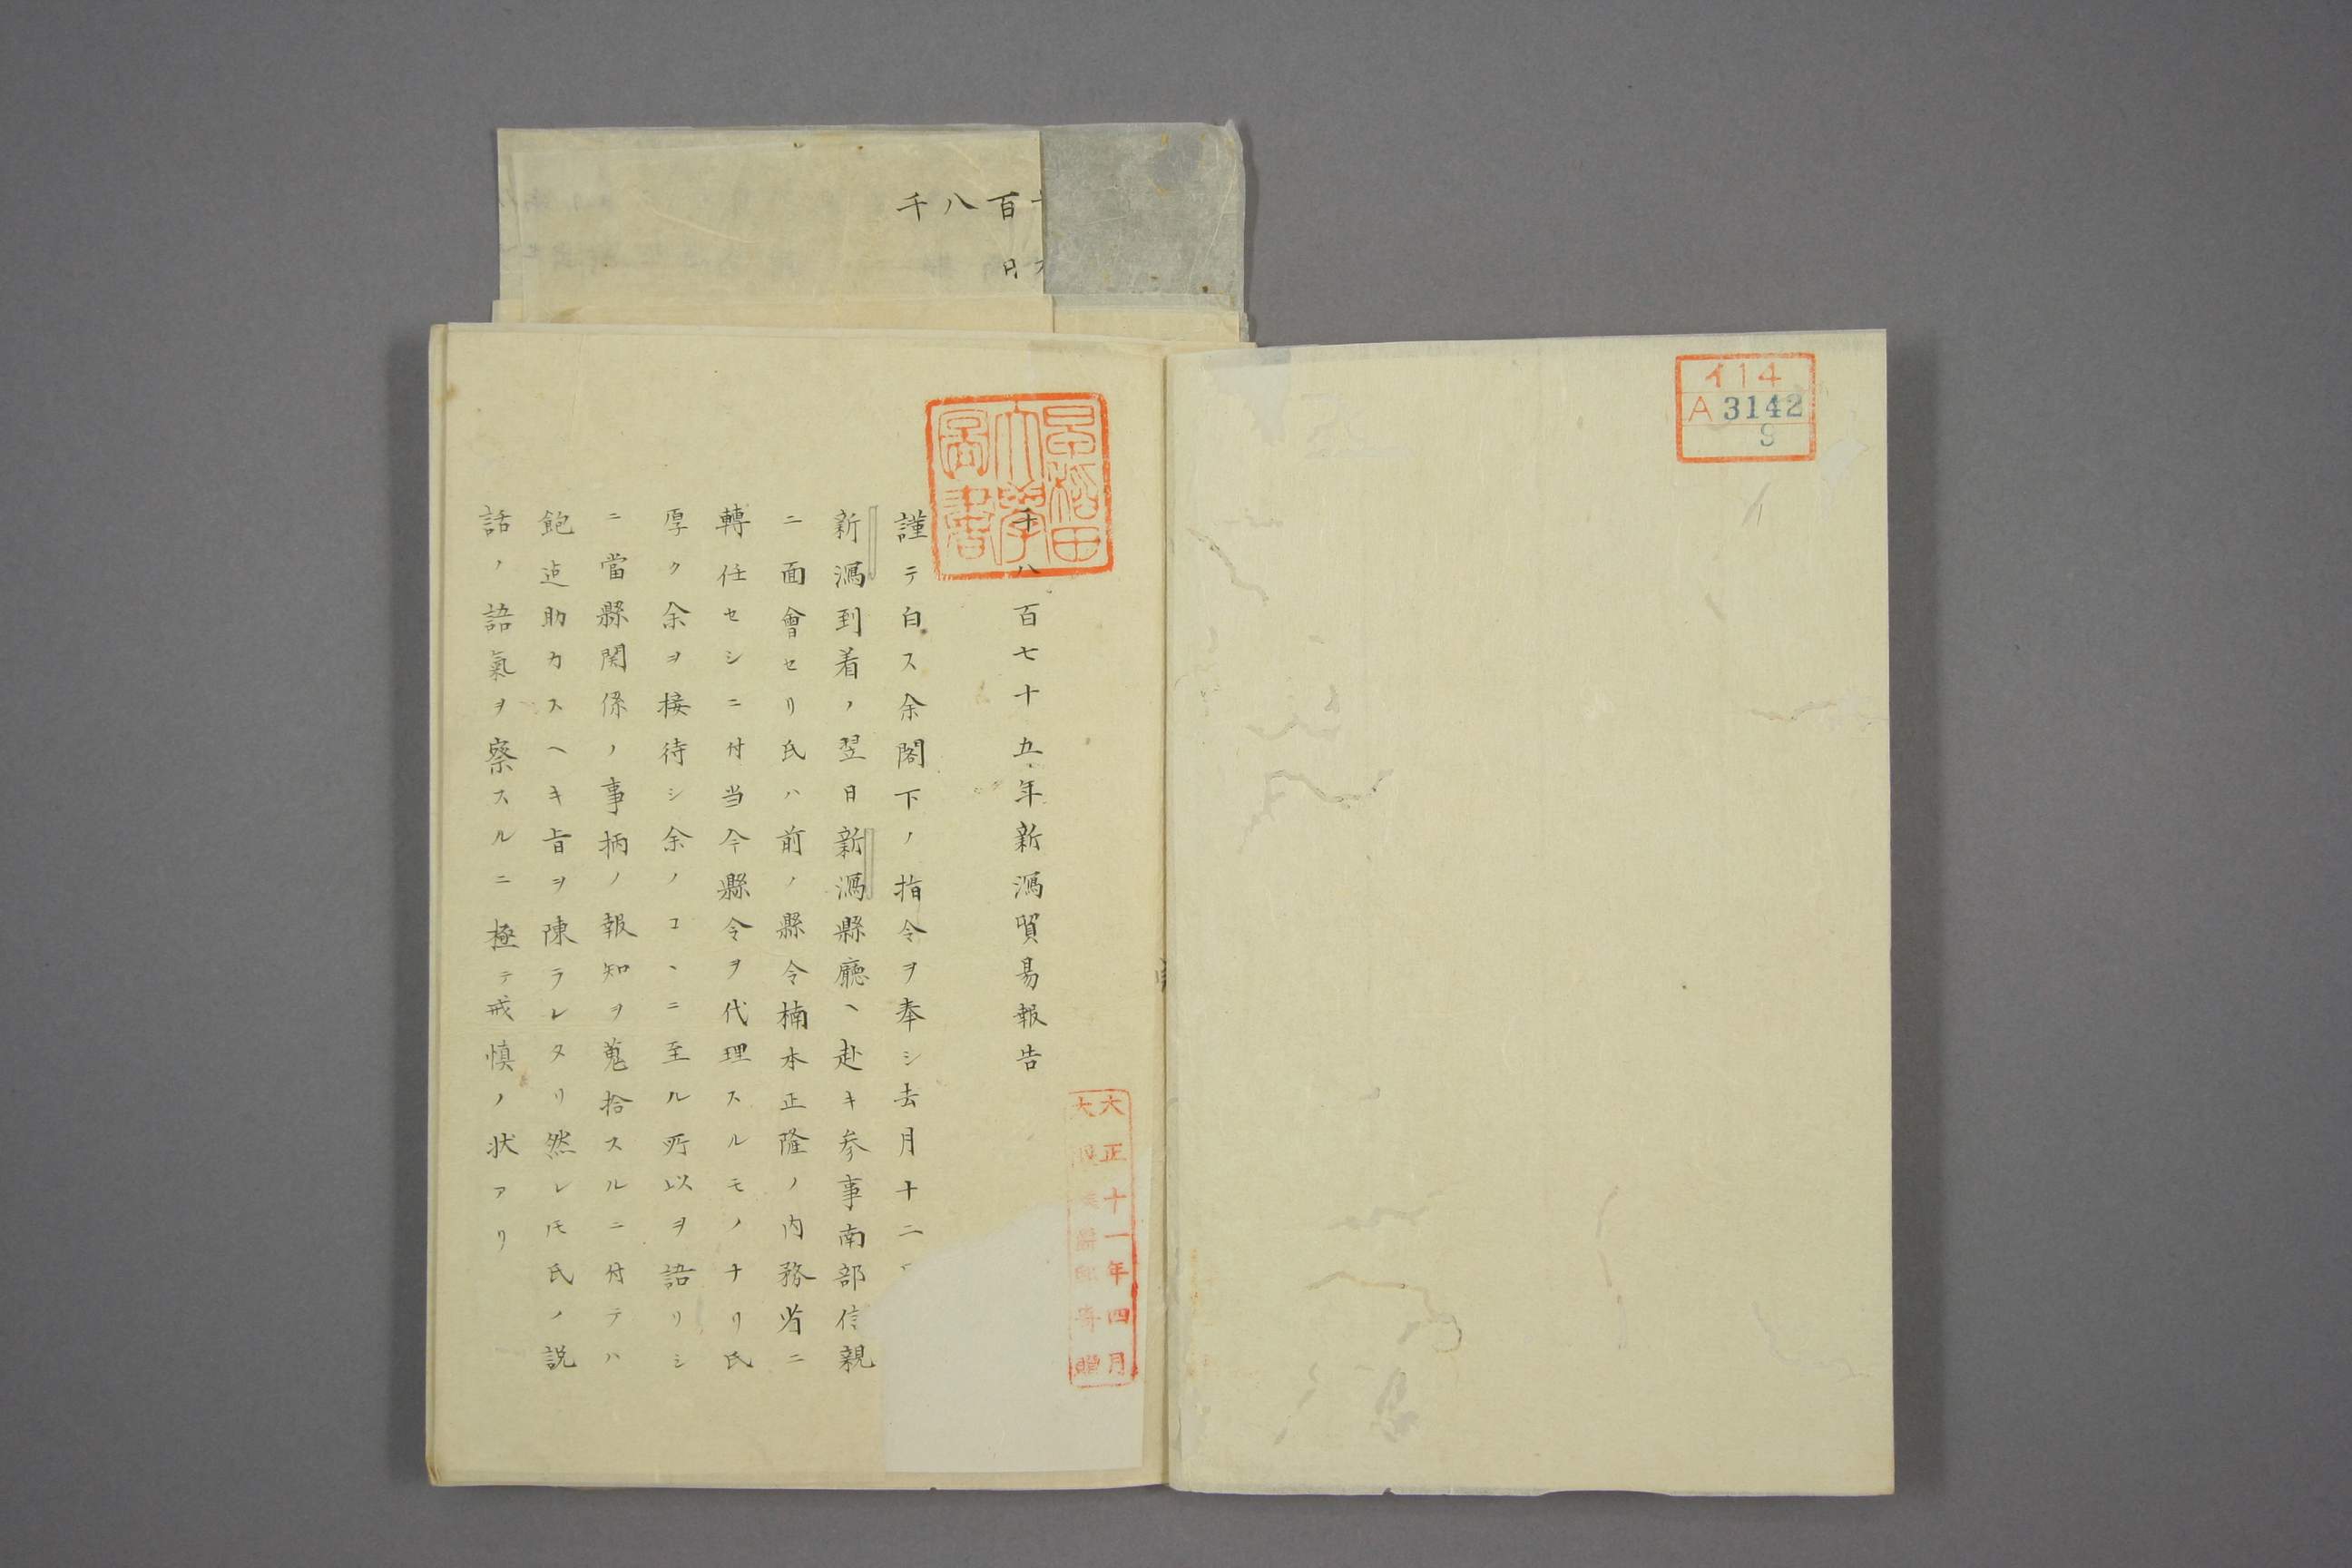 イ14
A 3142
9
早稲田
大學
圖書
大正十一年四月
寄贈
千八百七十五年新潟貿易報告
謹テ白ス余閣下ノ指令ヲ奉シ去月十二
新潟到着ノ翌日新潟縣廳ヘ赴キ参事南部信親
ニ面會セリ氏ハ前ノ縣令楠本正隆ノ内務省ニ
轉任セシニ付当今縣令ヲ代理スルモノナリ氏
厚ク余ヲ接待シ余ノコヽニ至ル所以ヲ語リシ
ニ當縣関係ノ事柄ノ報知ヲ蒐拾スルニ付テハ
飽迠助力スヘキ旨ヲ陳ラレタリ然レ𪜈氏ノ説
話ノ語氣ヲ察スルニ極テ戒慎ノ状アリ
百八千